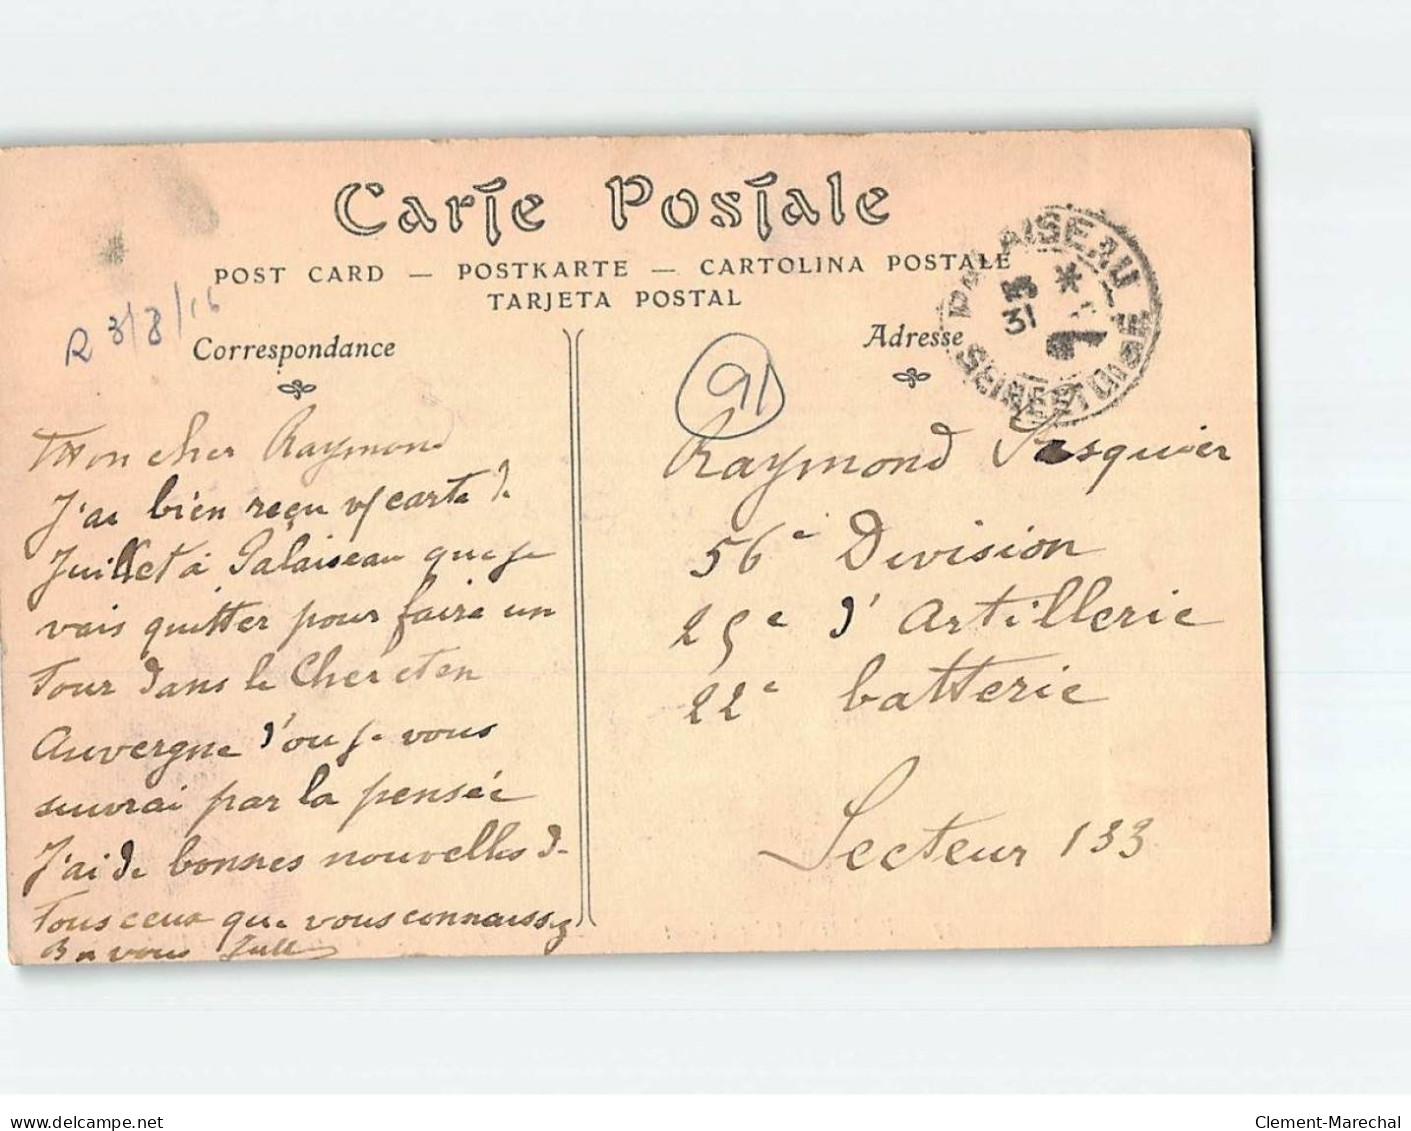 Carte Postale
POST CARD — POSTKARTE — CARTOLINA POSTALE
TARJETA POSTAL
R 3/8/16
Correspondance
Mon cher Raymond
J'ai bien reçu v/carte d.
Juillet à Palaiseau que je
vais quitter pour faire un
Tour dans le Cher et en
Auvergne d'ou je vous
suivrai par la pensée
J'ai de bonnes nouvelles de
Tous ceux que vous connaissez
B a vous
91
Adresse
PALAISEAU
31
SEINE ET OISE
Raymond Pasquier
56e Division
25e d'Artillerie
22e batterie
Secteur 133
www.delcampe.net
Clement-Marechal